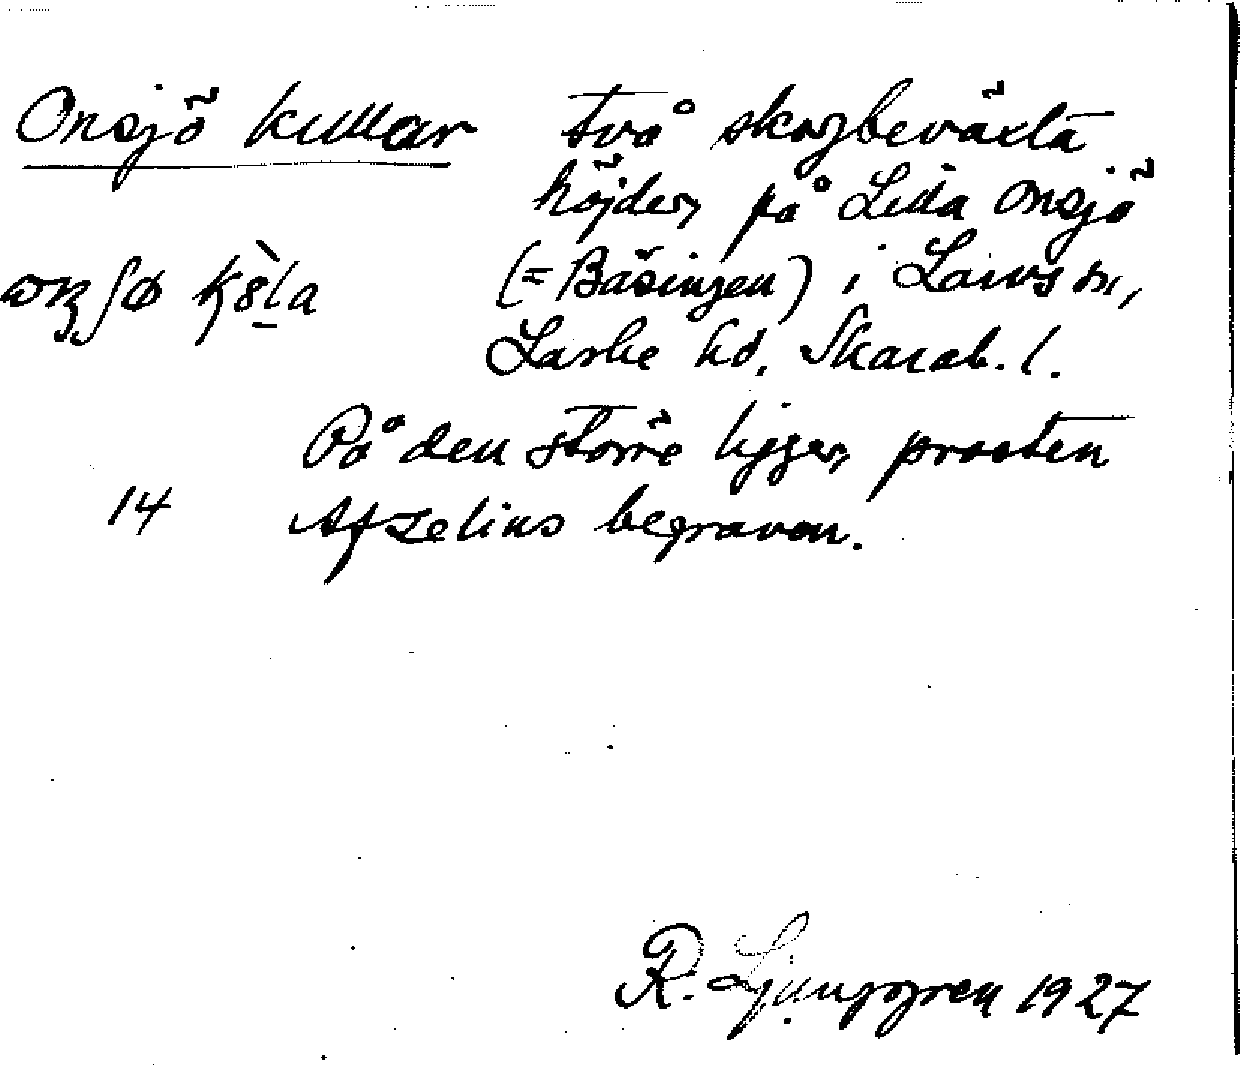 Onsjö kullar två skogbeväxta
höjder, på Lilla Onsjö
(= Båsingen) i Larvs sn,
Laske hd. Skarab. l.
På den större ligger prosten
14 Afzelius begraven.
R. Ljunggren 1927